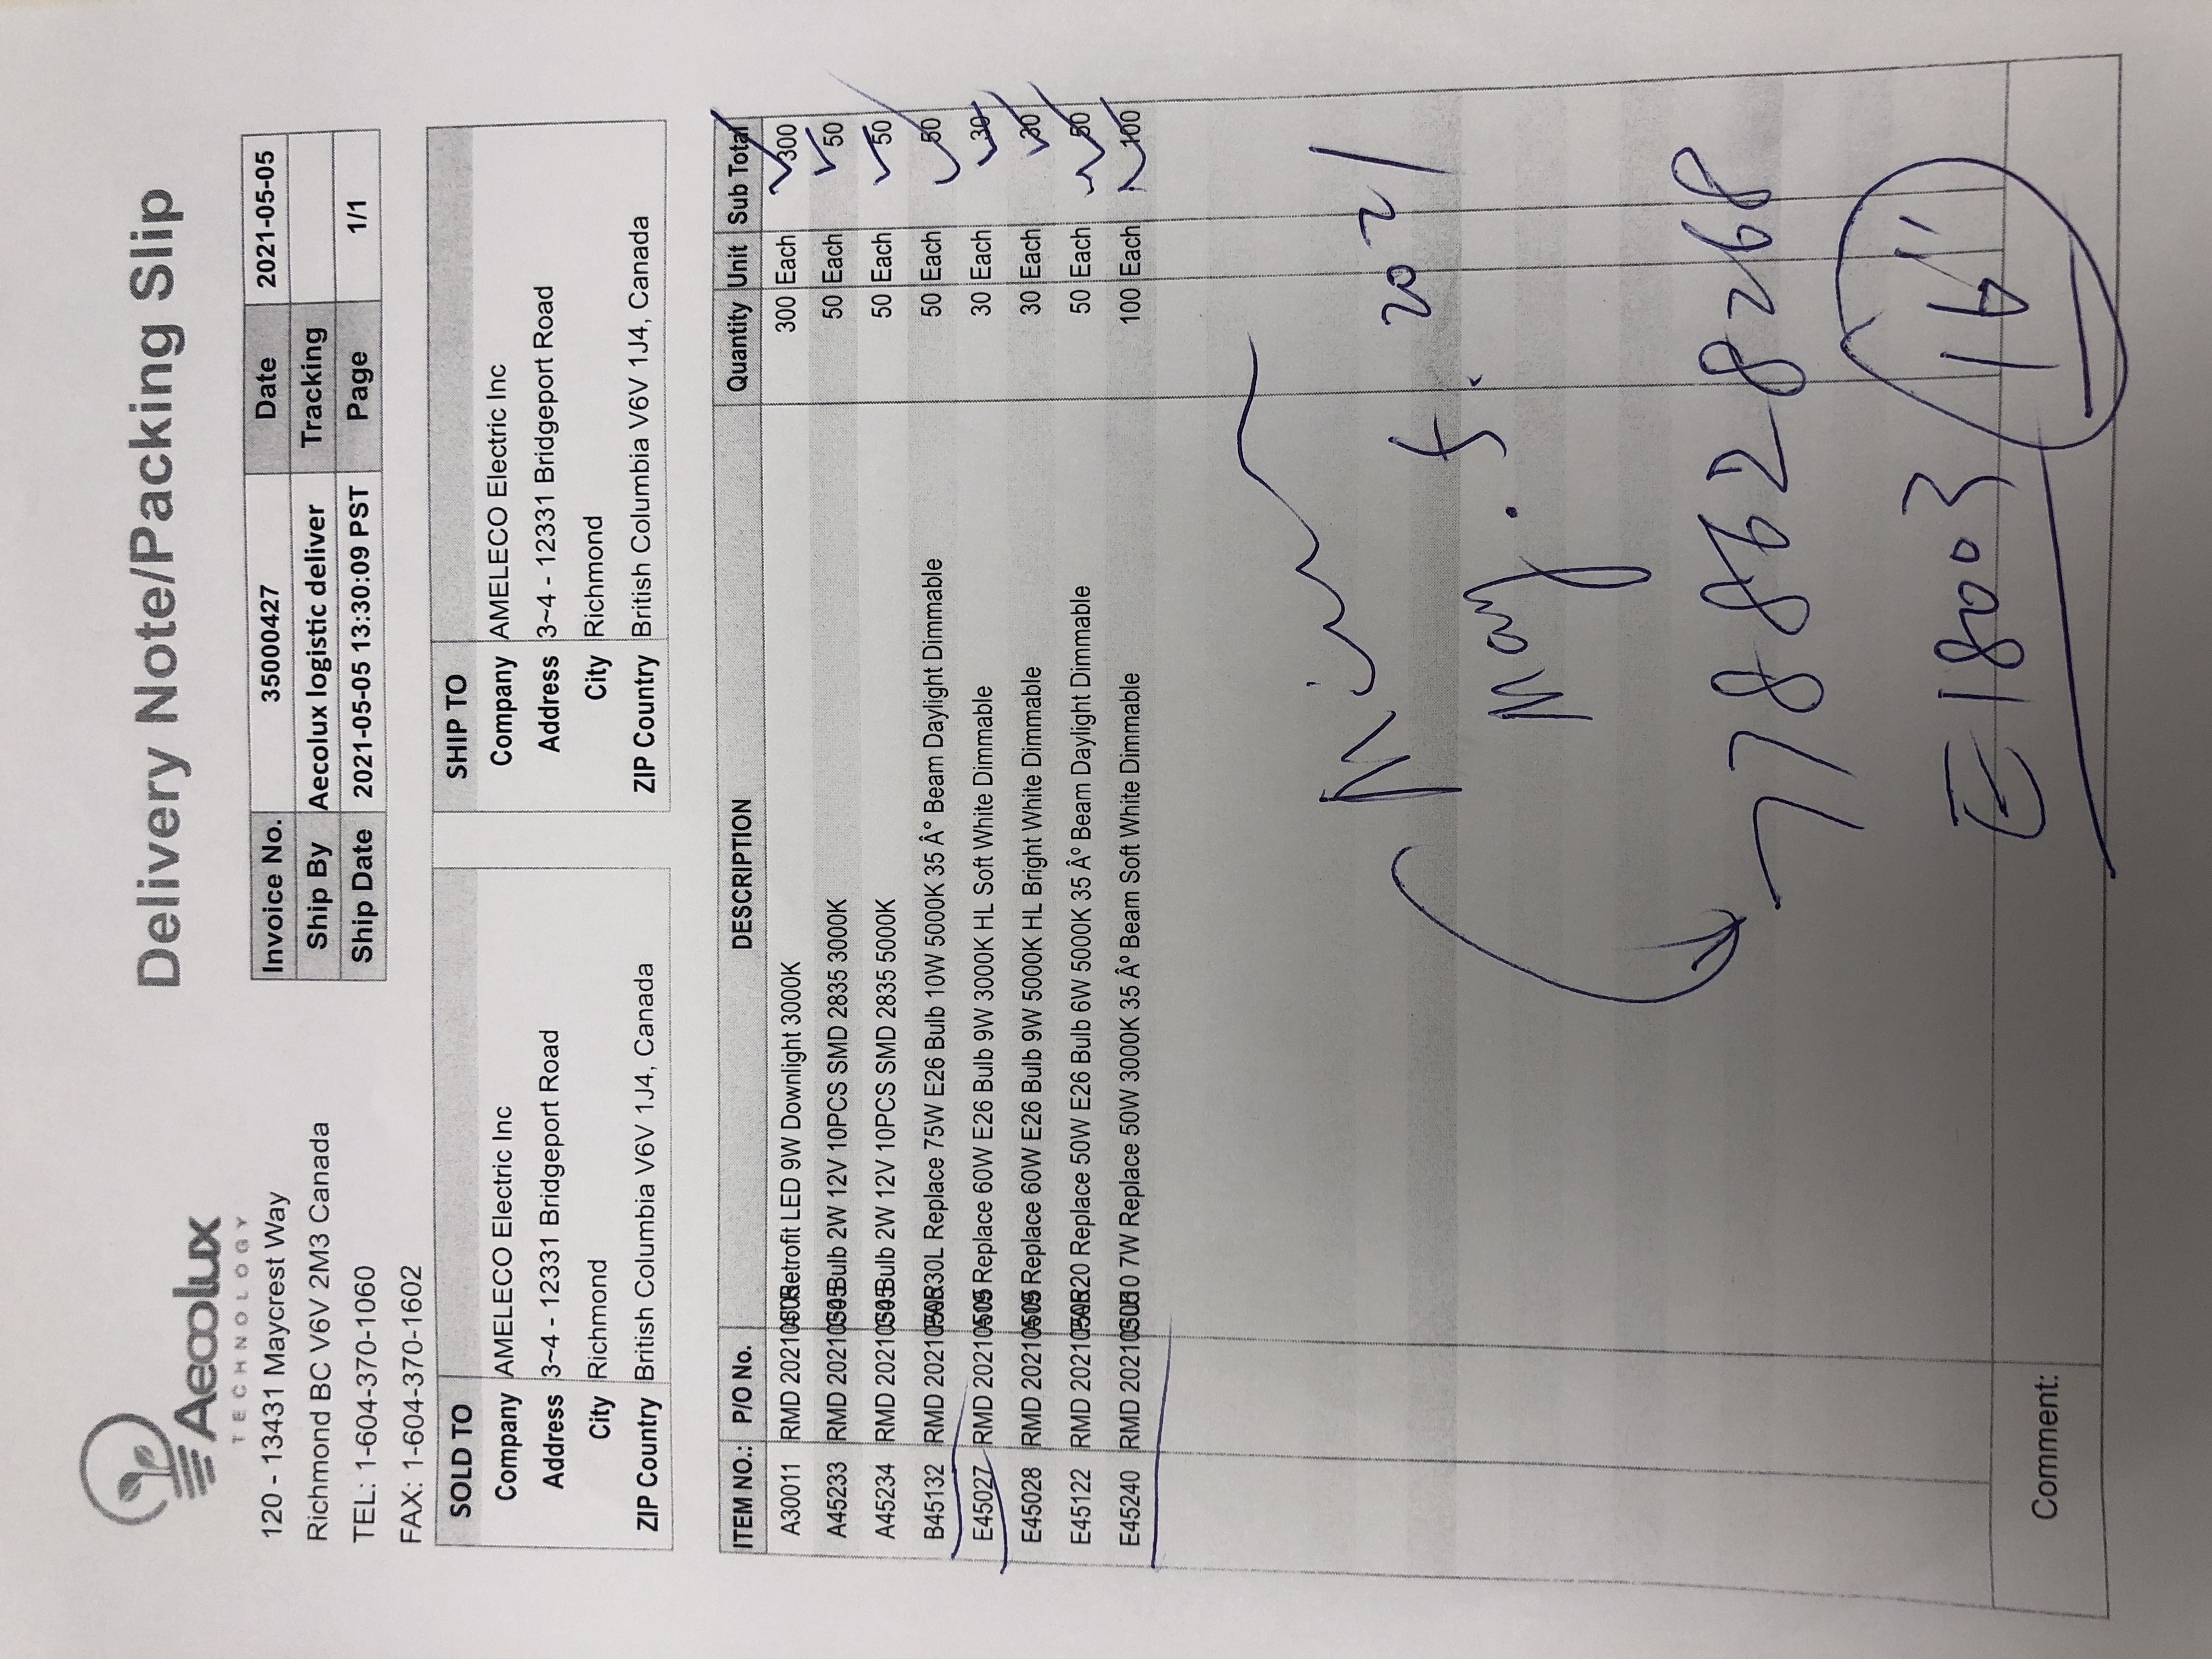 Aeco lux
TECHNOLOGY
120 - 13431 Maycrest Way
Richmond BC V6V 2M3 Canada
TEL: 1-604-370-1060
FAX: 1-604-370-1602
Delivery Note/Packing Slip
Invoice No. 35000427 Date 2021-05-05
Ship By Aecolux logistic deliver Tracking
Ship Date 2021-05-05 13:30:09 PST Page 1/1
SOLD TO
Company AMELECO Electric Inc
Address 3~4 - 12331 Bridgeport Road
City Richmond
ZIP Country British Columbia V6V 1J4, Canada
SHIP TO
Company AMELECO Electric Inc
Address 3~4 - 12331 Bridgeport Road
City Richmond
ZIP Country British Columbia V6V 1J4, Canada
ITEM NO.: P/O No. DESCRIPTION Quantity Unit Sub Total
A30011 RMD 20210505 Retrofit LED 9W Downlight 3000K 300 Each 300
A45233 RMD 20210505 Bulb 2W 12V 10PCS SMD 2835 3000K 50 Each 50
A45234 RMD 20210505 Bulb 2W 12V 10PCS SMD 2835 5000K 50 Each 50
B45132 RMD 20210505 PAR30L Replace 75W E26 Bulb 10W 5000K 35 Â° Beam Daylight Dimmable 50 Each 50
E45027 RMD 20210505 A19 Replace 60W E26 Bulb 9W 3000K HL Soft White Dimmable 30 Each 30
E45028 RMD 20210505 A19 Replace 60W E26 Bulb 9W 5000K HL Bright White Dimmable 30 Each 30
E45122 RMD 20210505 PAR20 Replace 50W E26 Bulb 6W 5000K 35 Â° Beam Daylight Dimmable 50 Each 50
E45240 RMD 20210505 GU10 7W Replace 50W 3000K 35 Â° Beam Soft White Dimmable 100 Each 100
May. 5. 2021
7788628268
E1803
Comment: